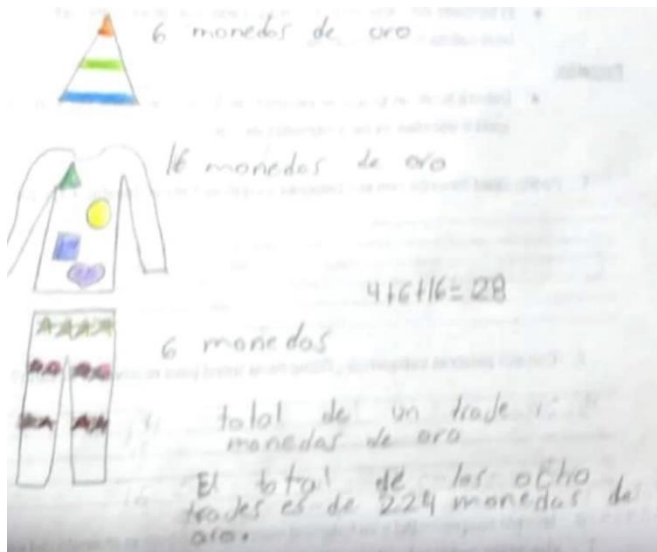 6 monedas de oro
16 monedas de oro
4+6+16=28
6 monedas
total de un traje
monedas de oro
El total de los ocho
trajes es de 224 monedas de
oro.